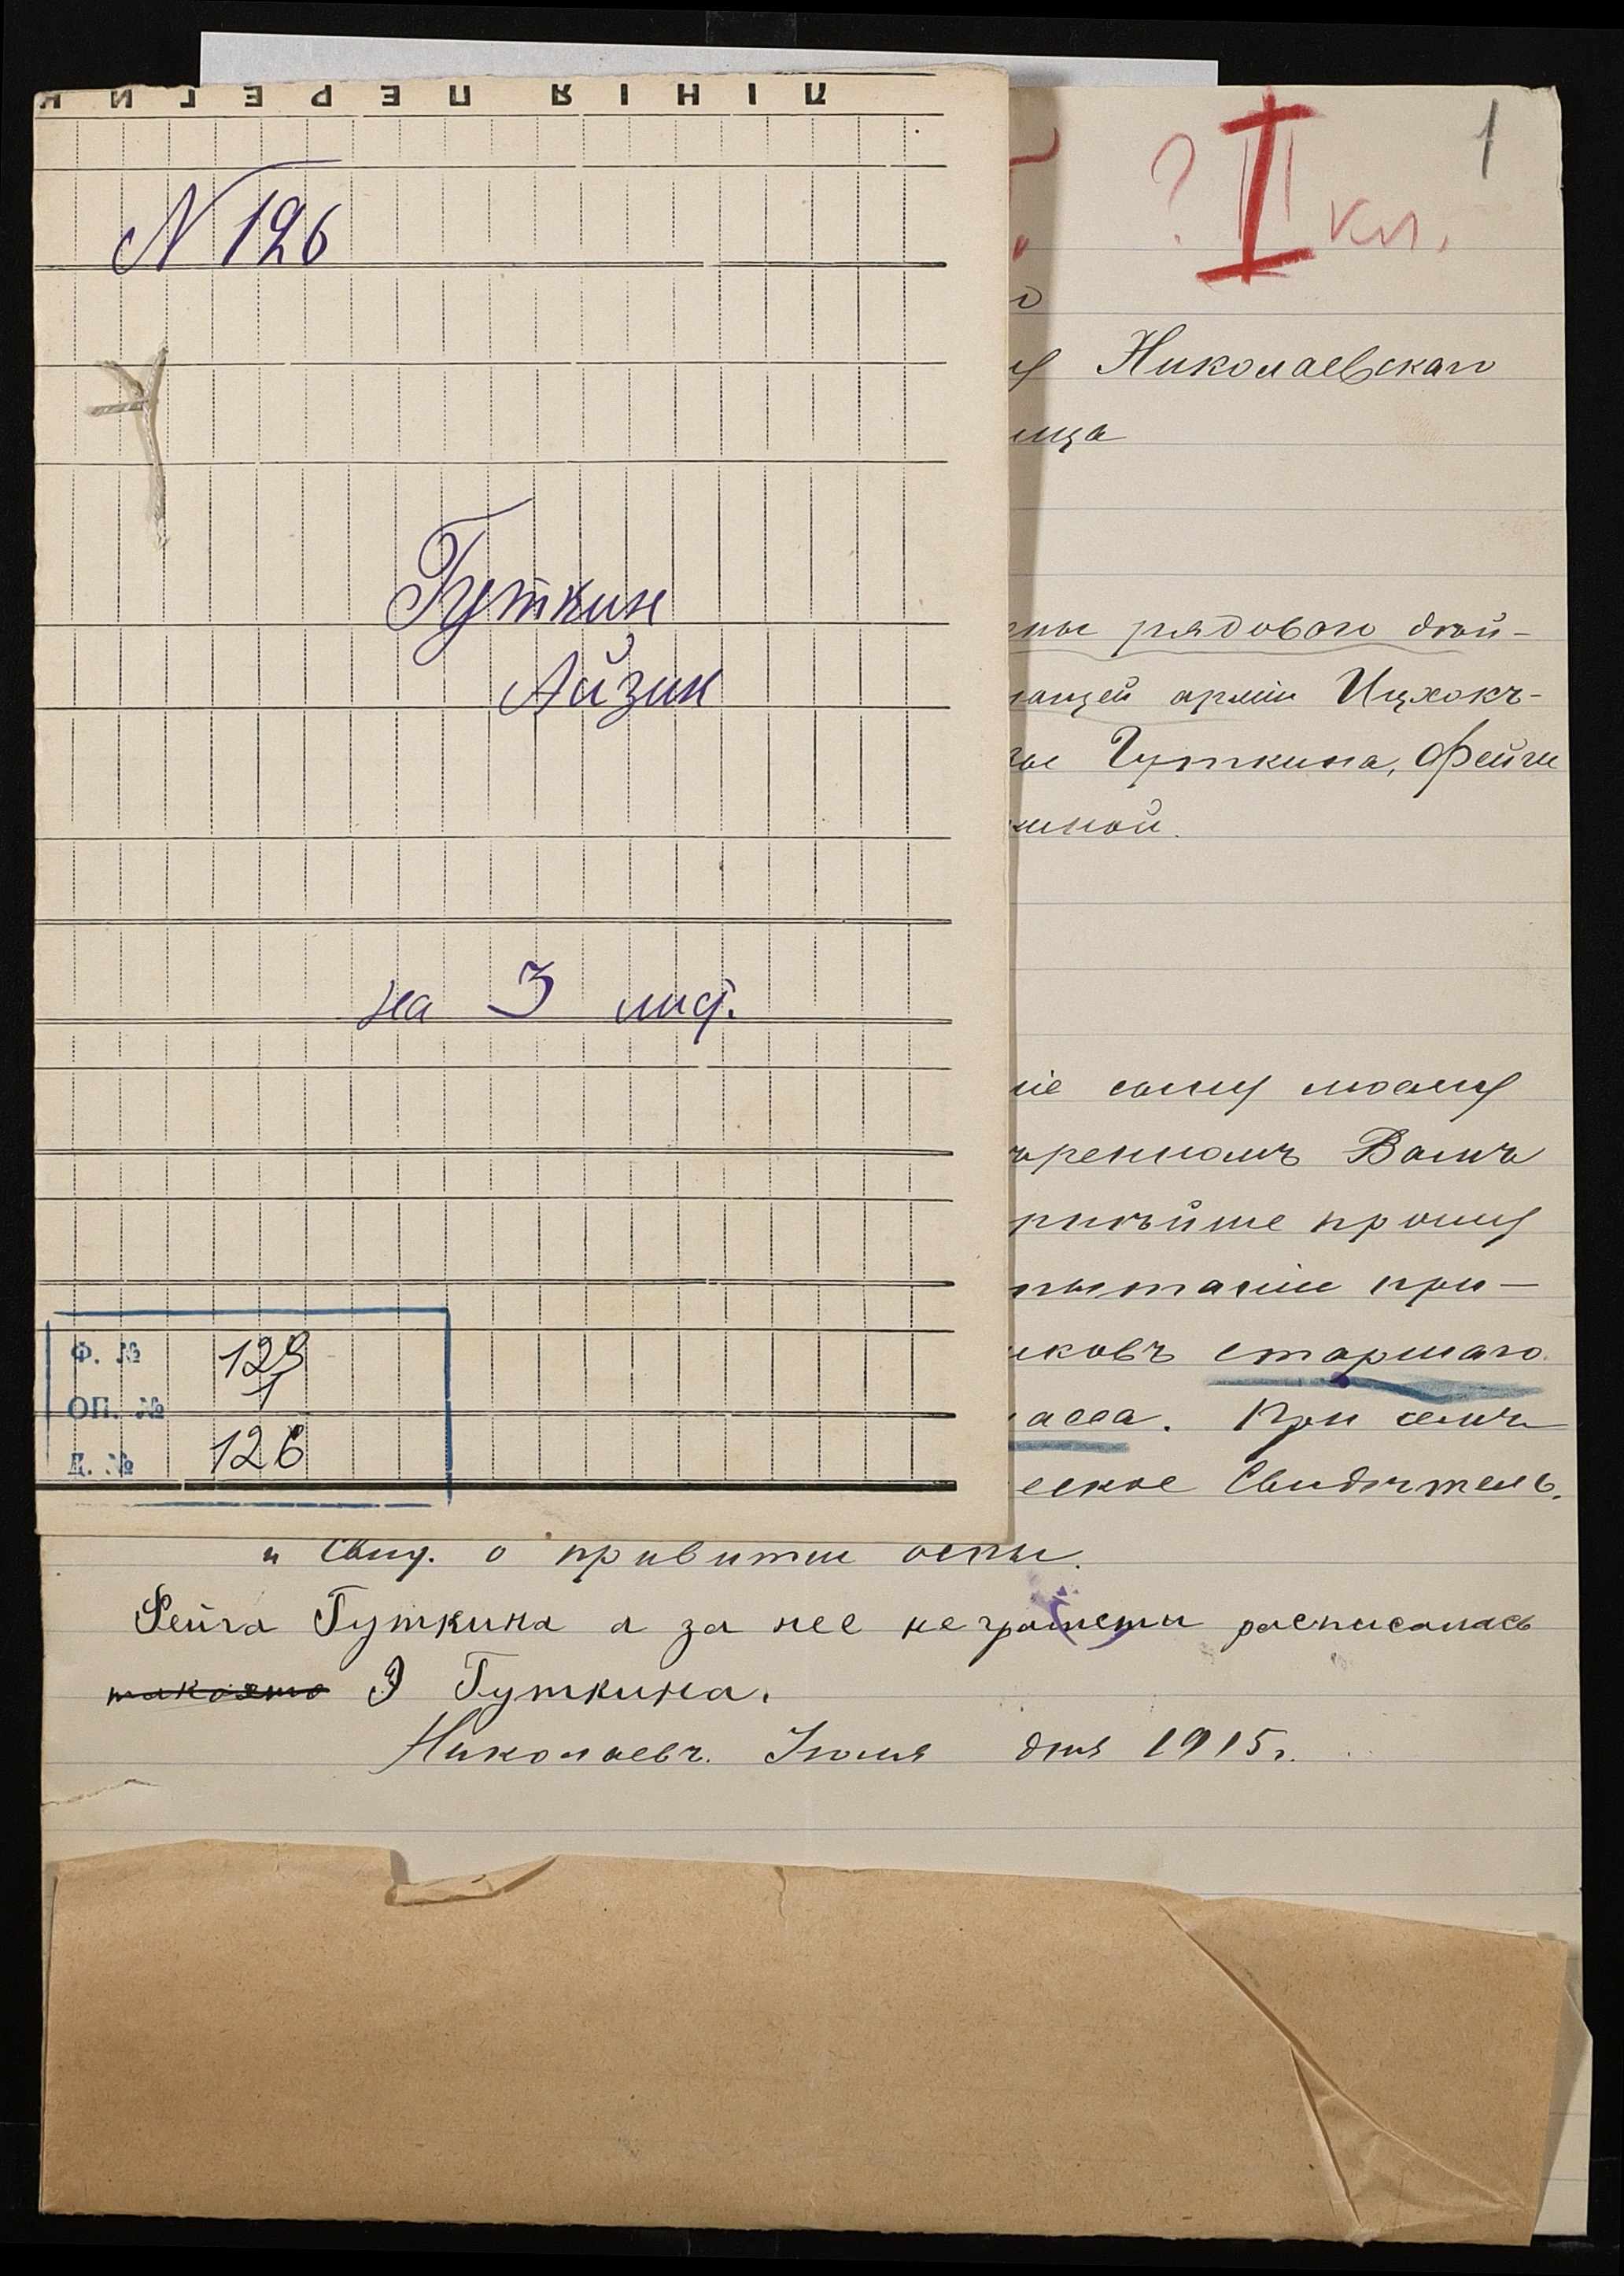 Л И Н І Я П Е Р Е Г И
N 126
Гуткин
Айзик
на 3 лис.
Ф. № 129
ОП. № 1
Д. № 126
? II кл.
1
Николаевскаго
ища
рядового дѣй-
ющей арміи Ицхокъ-
Гуткина, Фейги
киной.
ніе сыну моему
ѣренномъ Вамъ
рнѣйше прошу
пытаніи при-
иковъ старшаго
асса. При семъ
еское Свидѣтель.
и Свид. о привитіи оспы.
Фейга Гуткина а за нее неграмотн росписалась
Э Гуткина.
Николаевъ. Іюля дня 1915 г.